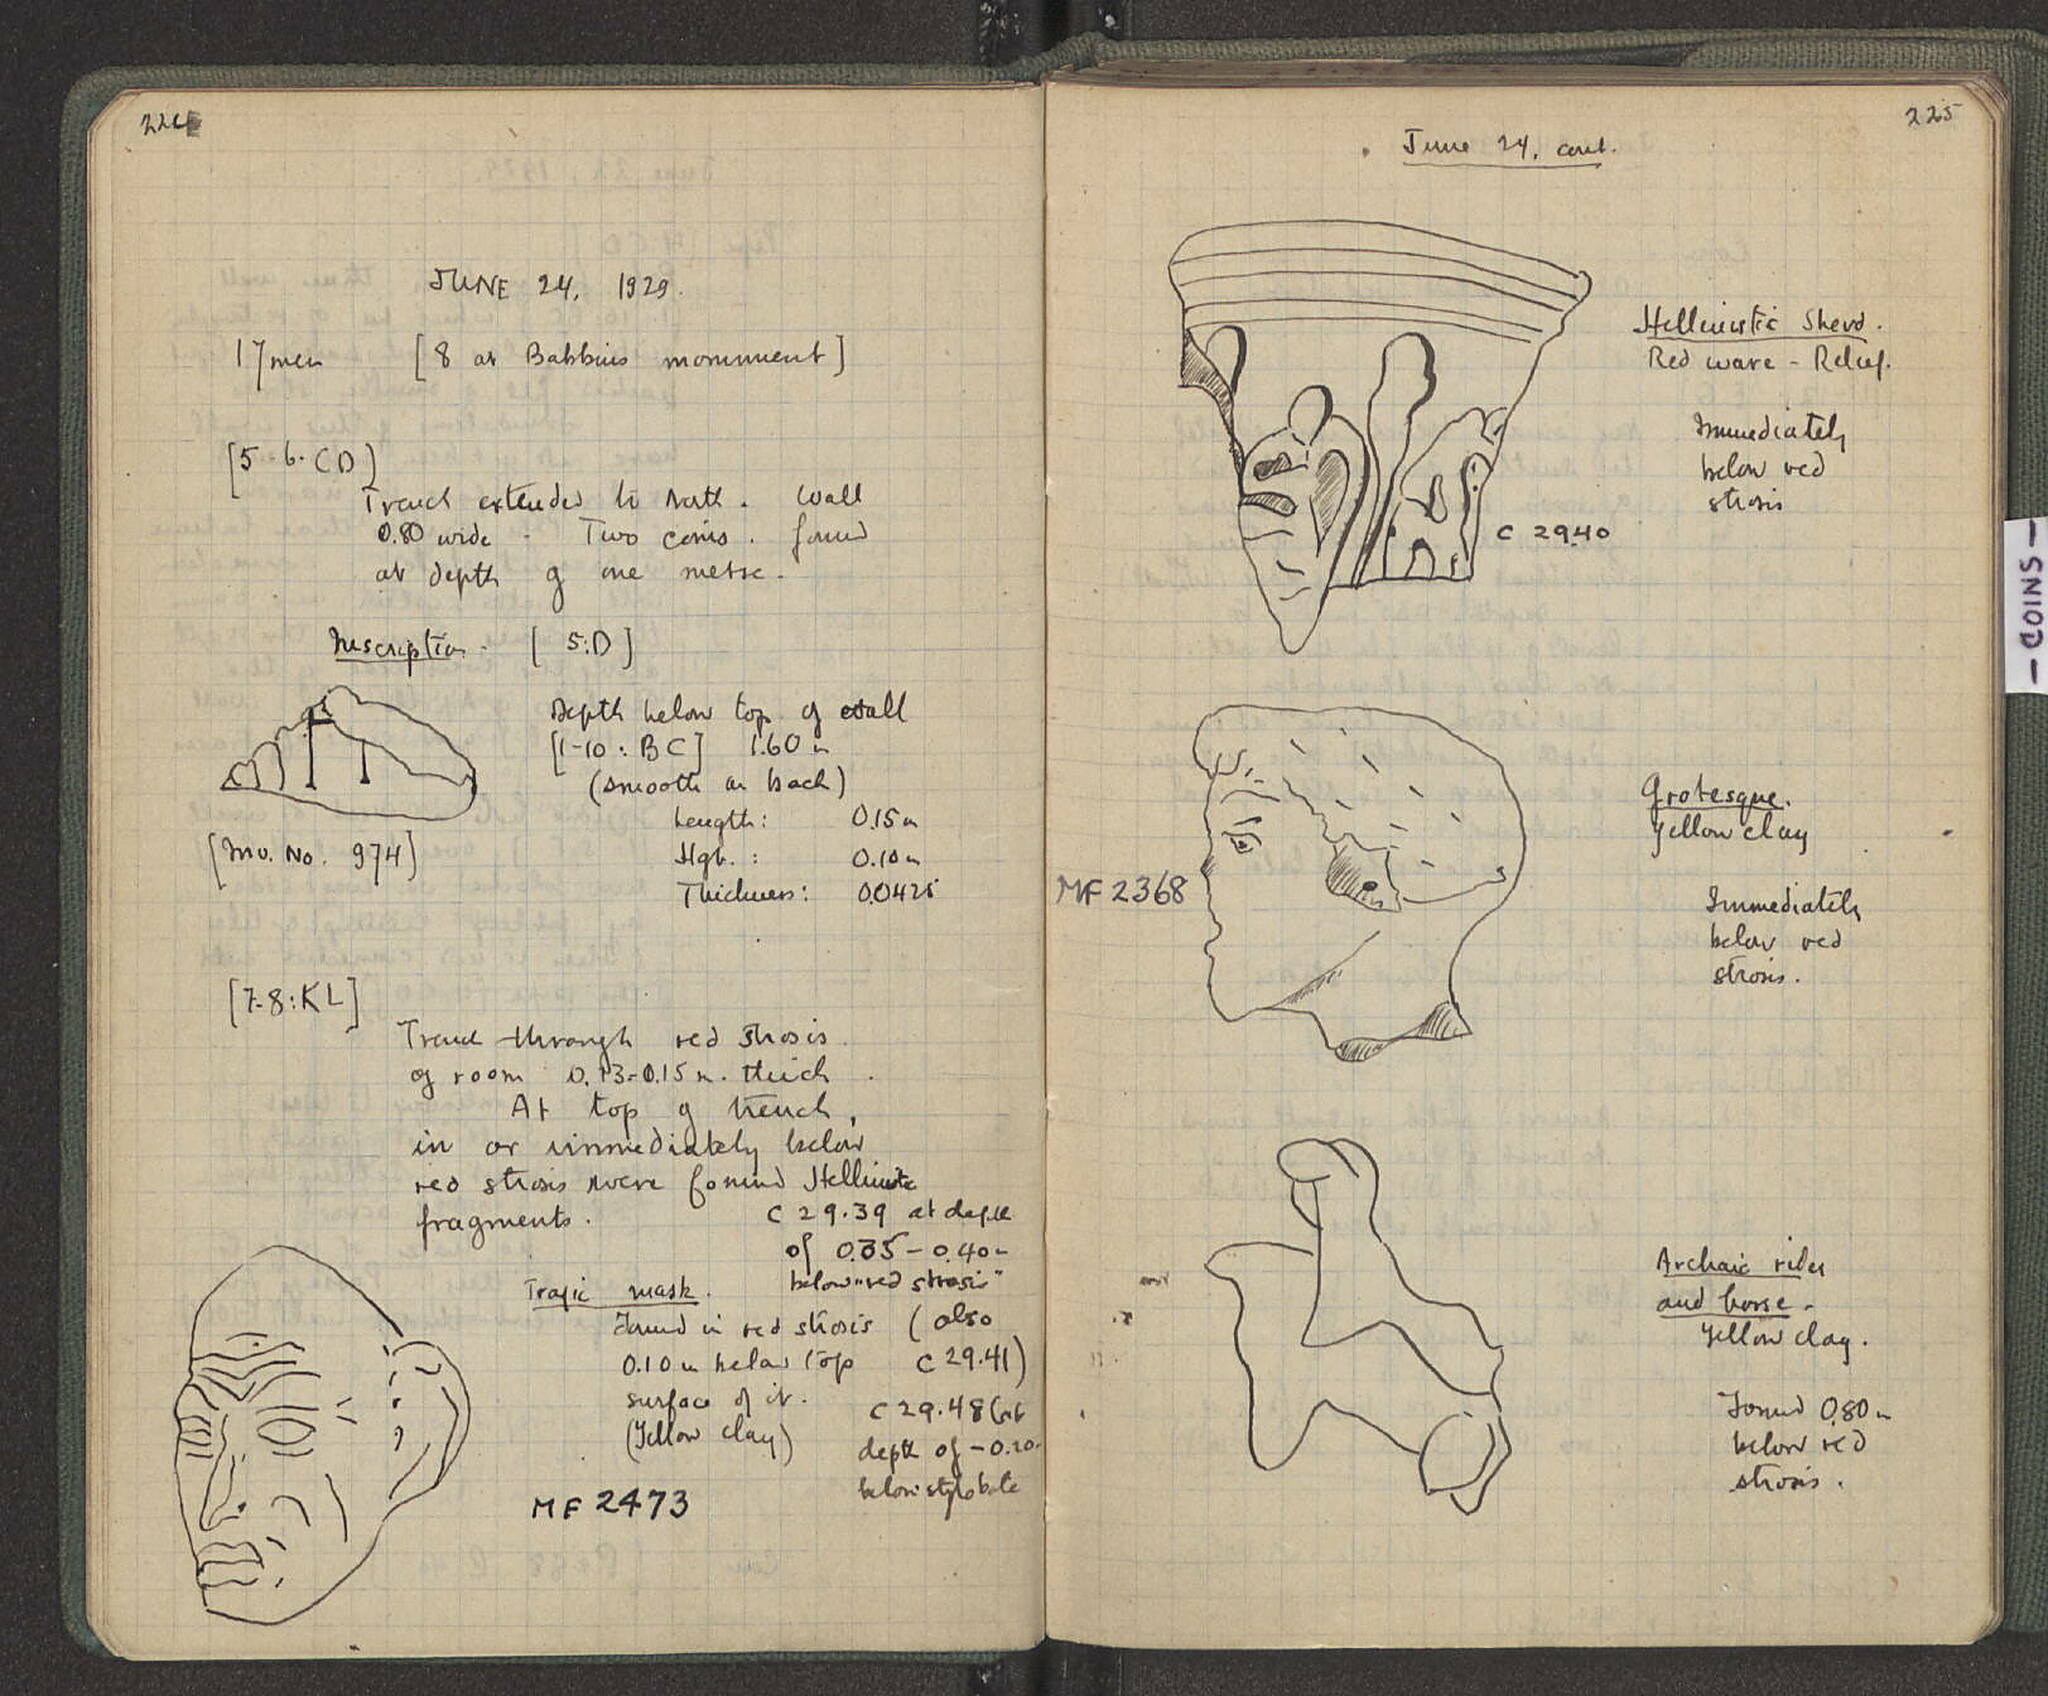 224
JUNE 24, 1929.
17 men [8 at Babbius monument]
[5-6: CD]
Trench extended to North. Wall
0.80 wide - Two coins. found
at depth of one metre.
Inscription - [5:D]
Depth below top of wall
[1-10: BC] 1.60 m
(smooth on back)
Length: 0.15 m
Hgt.: 0.10 m
Thickness: 0.0425
[Inv. No. 974]
[7-8: KL]
Trench through red strosis
of room 0.13-0.15 m. thick.
At top of trench,
in or immediately below
red strosis were found Hellinistic
fragments.
C 29.39 at depth
of 0.35-0.40 m
below "red strosis"
(also
C 29.41)
C 29.48 (at
depth of -0.20.
below stylobate
Tragic mask.
Found in red strosis
0.10 m below top
surface of it.
(Yellow clay)
MF 2473
225
June 24, cont.
Hellinistic Sherd.
Red ware - Relief.
Immediately
below red
strosis
C 29.40
Grotesque.
Yellow clay
MF 2368
Immediately
below red
strosis.
Archaic rider
and horse -
Yellow clay.
Found 0.80 m
below red
strosis.
- COINS -